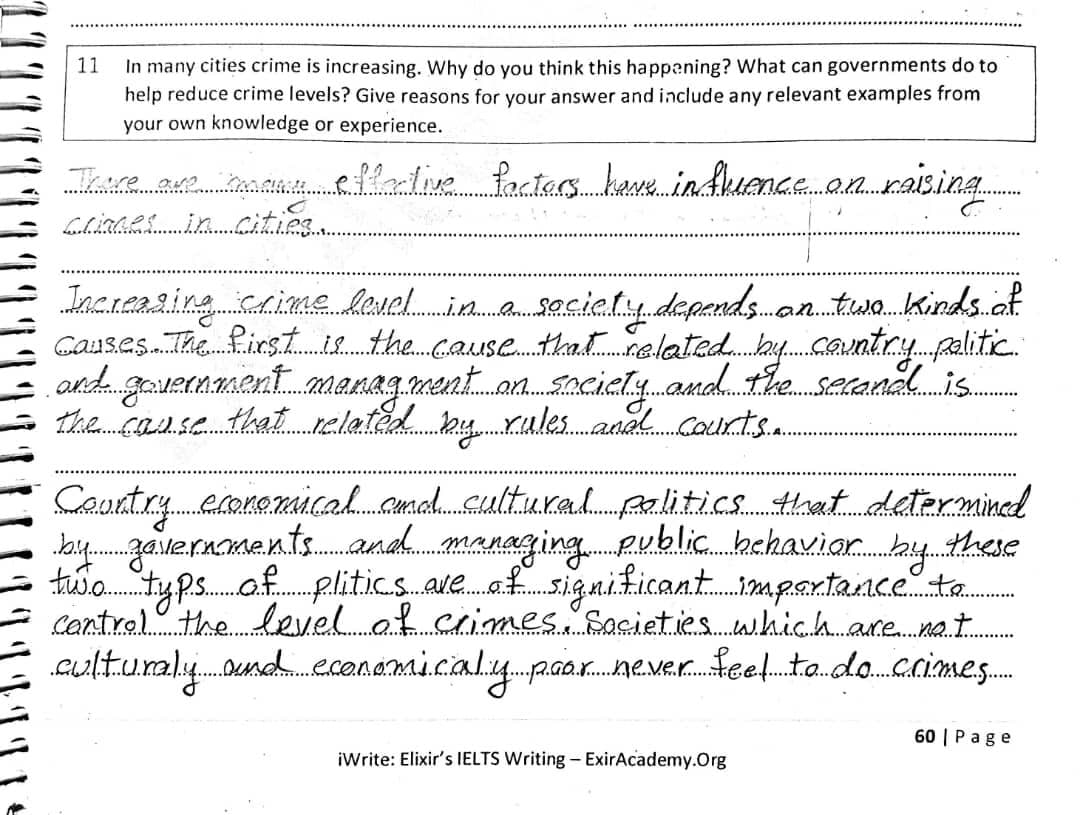 11 In many cities crime is increasing. Why do you think this happening? What can governments do to
help reduce crime levels? Give reasons for your answer and include any relevant examples from
your own knowledge or experience.
There are many effective factors have influence on raising
crimes in cities.
Increasing crime level in a society depends on two kinds of
causes. The first is the cause that related by country politic
and government managment on society and the second is
the cause that related by rules and courts.
Country economical and cultural politics that determined
by governments and managing public behavior by these
two typs of plitics are of significant importance to
control the level of crimes. Societies which are not
culturaly and economicaly poor never feel to do crimes
60 | Page
iWrite: Elixir's IELTS Writing – ExirAcademy.Org